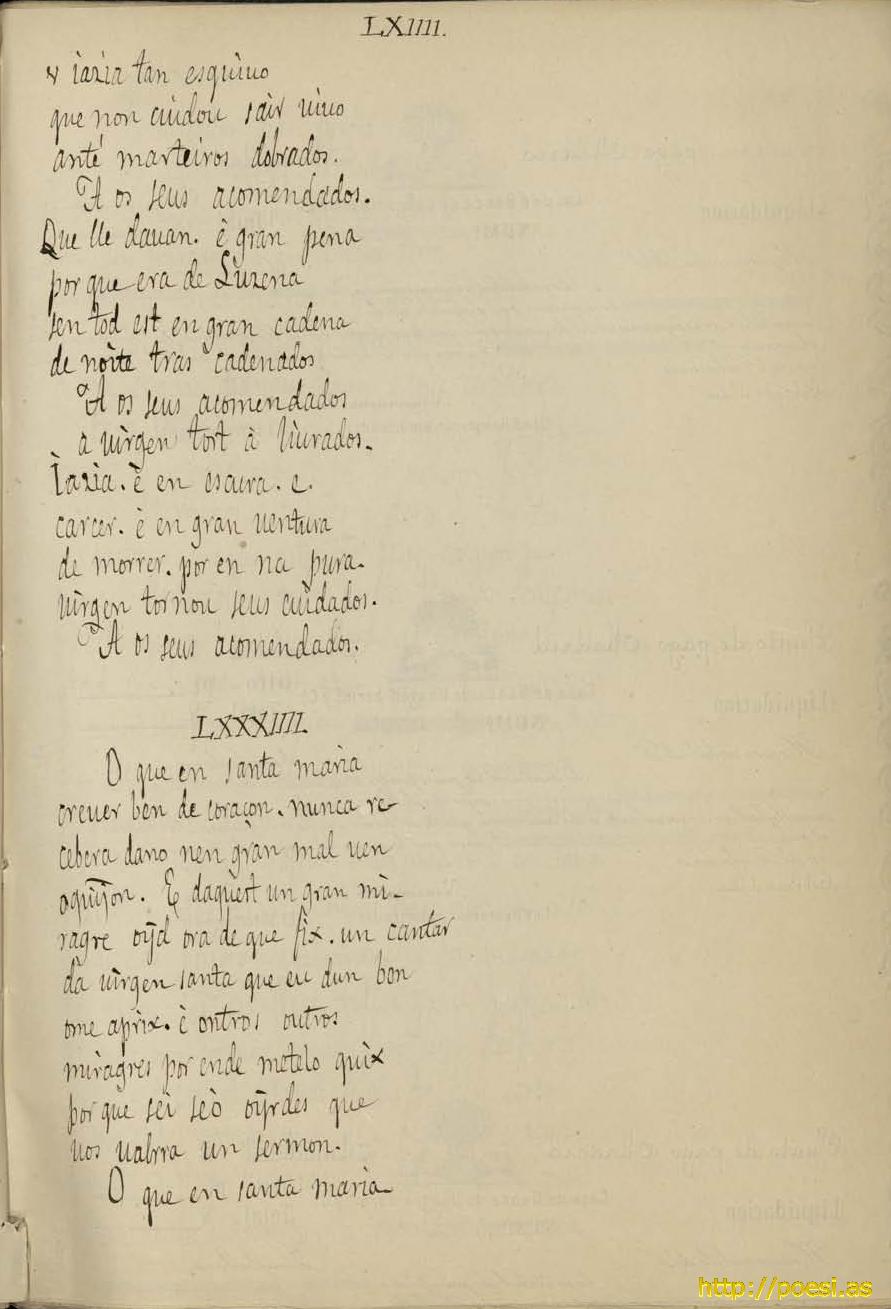 LXIIII.
v iazia tan esquiuo
que non cuidou sair uiuo
ante marteiros dobrados.
A os seus acomendados.
Que lle dauan. è gran pena
por que era de Luzena
sen tod est en gran cadena
de noite tras cadenados
A os seus acomendados
a uirgen tost à liurados.
Iazia. è en escura. e.
carcer. è en gran uentura
de morrer. por en na pura.
uirgen tornou seus cuidados.
A os seus acomendados.
LXXXIIII.
O que en santa maria
creuer ben de coraçon. nunca re-
cebera dano nen gran mal nen
oquijon. E daquest un gran mi-
ragre oyd ora de que fix. un cantar
da uirgen santa que eu dun bon
ome aprix. è ontros outros
miragres por ende metelo quix
por que sei seo oyrdes que
uos ualrra un sermon.
O que en santa maria
http://poesi.as